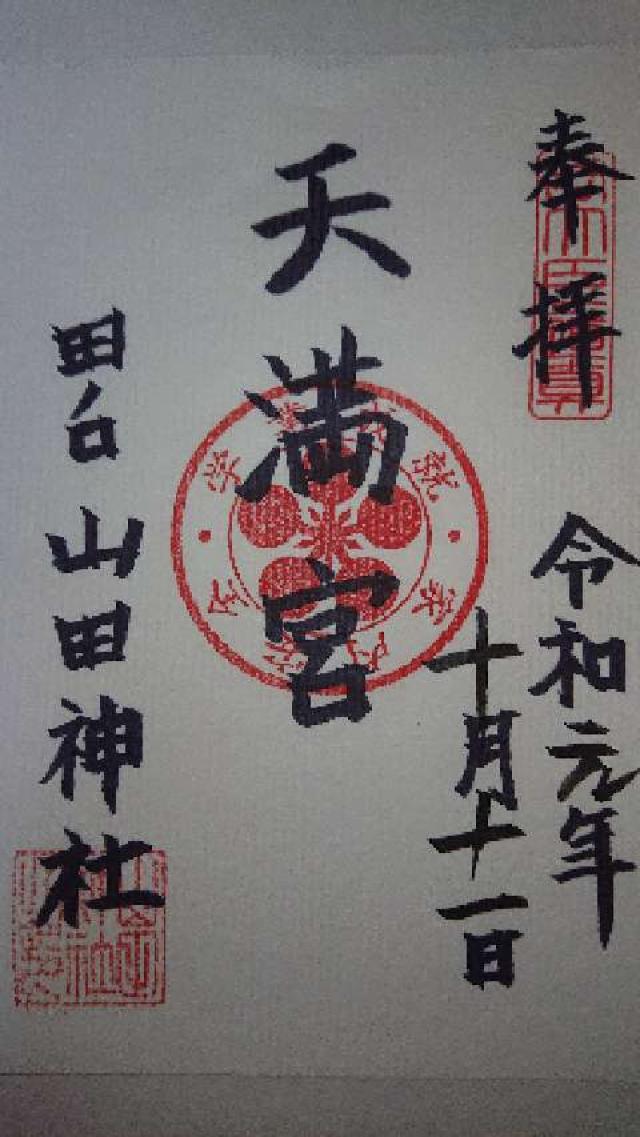 奉拝
令和元年
十月十一日
天満宮
田口
山田神社